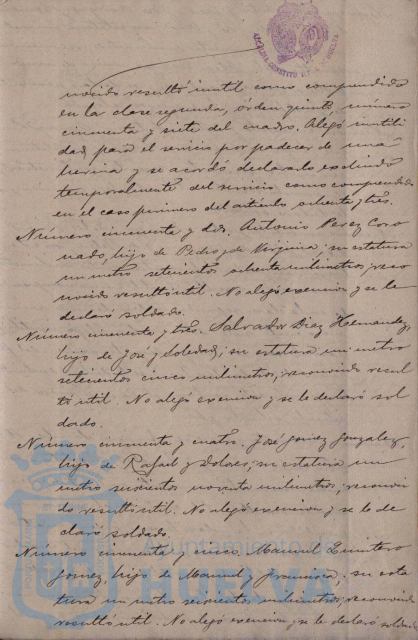 nocido resultó inutil como comprendido
en la clase segunda, órden quinto, número
cincuenta y siete del cuadro. Alegó inutili
dad para el servicio por padecer de una
hernia y se acordó declararlo excluido
temporalmente del servicio como comprendido
en el caso primero del articulo ochenta y tres.
Número cincuenta y dos. Antonio Perez Coro
nado, hijo de Pedro y de Virginia; su estatura
un metro setecientos ochenta milimetros; reco
nocido resultó util. No alegó exencion y se le
declaró soldado.
Número cincuenta y tres. Salvador Diaz Hernandez,
hijo de José y Soledad, su estatura un metro
setecientos cinco milimetros; reconocido resul
tó util. No alegó exencion y se le declaró sol
dado.
Número cincuenta y cuatro. José Gomez Gonzalez,
hijo de Rafael y Dolores; su estatura un
metro seiscientos noventa milimetros; reconoci
do resultó util. No alegó exencion y se le de
claró soldado.
Número cincuenta y cinco. Manuel Quintero
Gomez, hijo de Manuel y Francisca; su esta
tura un metro seiscientos milimetros; reconocido
resultó util. No alegó exencion y se le declaró soldado
Ayuntamiento de
HUELVA